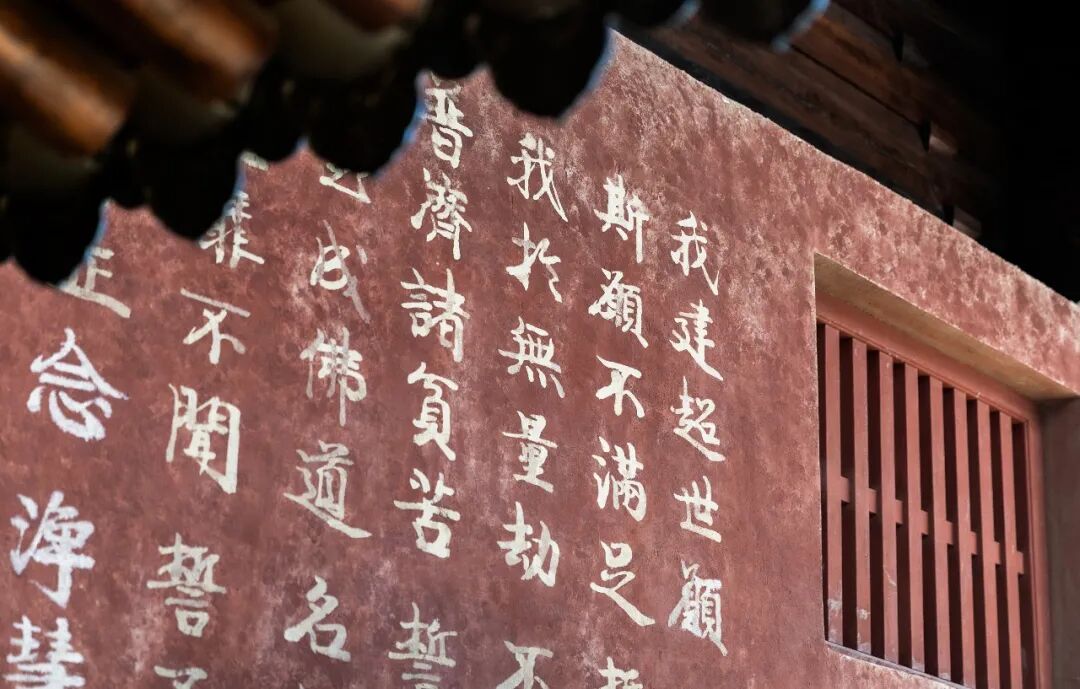 我建超世願
斯願不滿足
我於無量劫 不
普濟諸貧苦 誓
成佛道 名
靡不聞 誓不
正念 淨慧